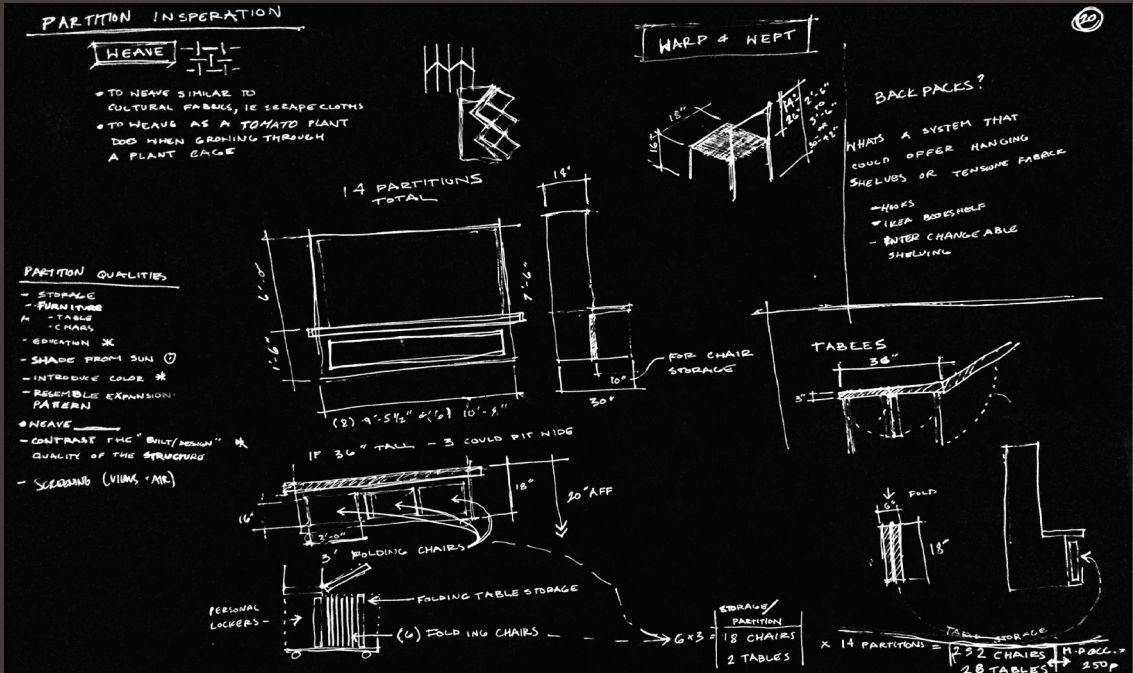 PARTITION INSPERATION
20
WEAVE
• TO WEAVE SIMILAR TO
CULTURAL FABRICS, IE SERAPE CLOTHS
• TO WEAVE AS A TOMATO PLANT
DOES WHEN GROWING THROUGH
A PLANT CAGE
WARP & WEFT
18"
16"
BACKPACKS?
WHATS A SYSTEM THAT
COULD OFFER HANGING
SHELVES OR TENSIONE FABRICK
- HOOKS
- IKEA BOOKSHELF
- INTER CHANGEABLE
SHELVING
14 PARTITIONS
TOTAL
6'-0"
1'-6"
7'-6"
(8) 9'-5 1/2" & (6) 10'-8"
18"
10"
30"
FOR CHAIR
STORAGE
PARTITION QUALITIES
- STORAGE
- FURNITURE
- TABLE
- CHARS
- EDUCATION *
- SHADE FROM SUN
- INTRODUCE COLOR *
- RESEMBLE EXPANSION
PATTERN
• WEAVE
- CONTRAST THE "BUILT/DESIGN" *
QUALITY OF THE STRUCTURE
- SCREENING (VIEWS + AIR)
TABLES
36"
3"
IF 36" TALL - 3 COULD FIT WIDE
16"
18"
20" AFF
2'-0"
3' FOLDING CHAIRS
FOLD
6"
18"
PERSONAL
LOCKERS -
FOLDING TABLE STORAGE
(6) FOLDING CHAIRS
6x3 =
STORAGE/
PARTITION
18 CHAIRS
2 TABLES
x 14 PARTITIONS =
TABLE STORAGE
252 CHAIRS
28 TABLES
250 P